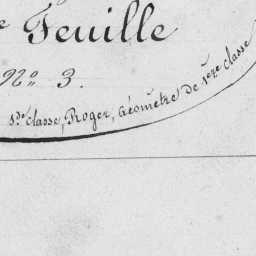 e Feuille
N.º 3.
s.de classe, Roger, Géomêtre de 1.ere classe